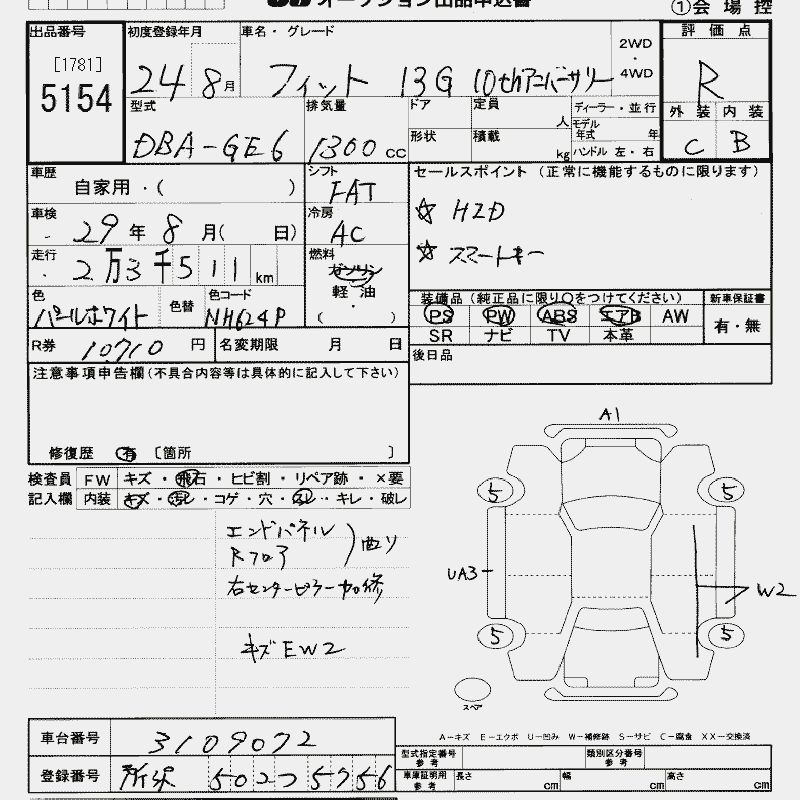 オークション出品申込書
①会場控
出品番号
[1781]
5154
初度登録年月
24 8月
車名・グレード
フィット 13G 10thアニバーサリー
2WD
・
4WD
評価点
R
外装 内装
C B
型式
DBA-GE6
排気量
1300 cc
ドア
定員
人
ディーラー・並行
モデル年式 年
形状
積載
kg
ハンドル 左・右
車歴
自家用・( )
シフト
FAT
セールスポイント (正常に機能するものに限ります)
☆ HID
☆ スマートキー
車検
29年 8月( 日)
冷房
AC
走行
2万3千511km
燃料
ガソリン
・
軽油
( )
色
パールホワイト
色替
色コード
NH624P
装備品(純正品に限り○をつけてください)
新車保証書
PS PW ABS エアB AW
有・無
SR ナビ TV 本革
R券 10710円
名変期限 月 日
後日品
注意事項申告欄(不具合内容等は具体的に記入して下さい)
修復歴 有 〔箇所 〕
検査員 FW キズ・飛石・ヒビ割・リペア跡・×要
記入欄 内装 キズ・汚レ・コゲ・穴・スレ・キレ・破レ
エンドパネル
Rフロア
)曲り
右センターピラー加修
キズEW2
A1
5 5
UA3
W2
5 5
スペア
A-キズ E-エクボ U-凹み W-補修跡 S-サビ C-腐食 XX-交換済
車台番号 3109072
登録番号 所沢 502つ5756
型式指定番号 参考
類別区分番号 参考
車庫証明用 参考
長さ cm 幅 cm 高さ cm